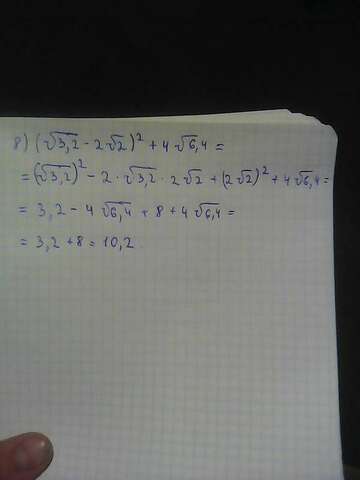 8) (√3,2 - 2√2)² + 4√6,4 =
= (√3,2)² - 2 · √3,2 · 2√2 + (2√2)² + 4√6,4 =
= 3,2 - 4√6,4 + 8 + 4√6,4 =
= 3,2 + 8 = 10,2.